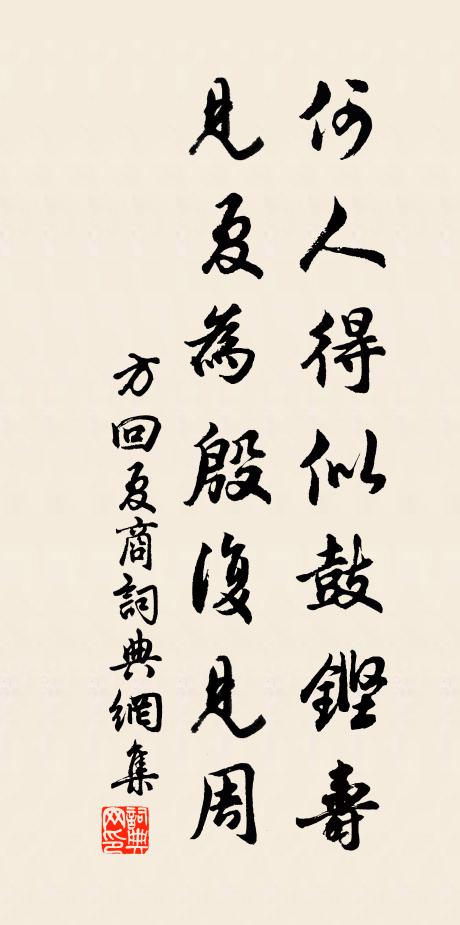 何人得似鼓鏗壽
見夏為殷復見周
方回夏商詞典網集
詞典網印